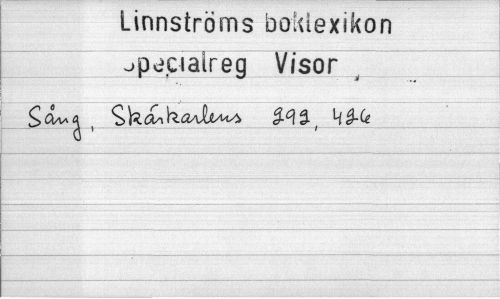 Linnströms boklexikon
Specialreg Visor
Sång, Skärkarlens 292, 426